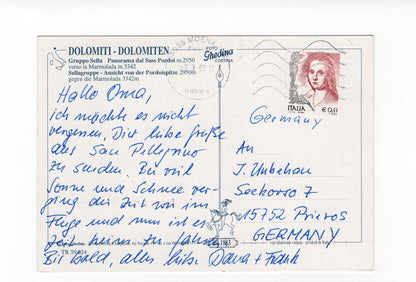 DOLOMITI - DOLOMITEN
Gruppo Sella Panorama dal Sass Pordoi m.2950
verso la Marmolada m.3342
Sellagruppe - Ansicht von der Pordoispitze 2950m
gegen die Marmolada 3342m
FOTO
Ghedina
CORTINA
MOENA
ITALIA
€ 0,41
Hallo Oma,
ich möchte es nicht
vergessen, Dir liebe Grüße
aus San Pellegrino
zu senden. Bei viel
Sonne und Schnee ver-
ging die Zeit wie im
Fluge und nun ist es
Zeit heim zu fahren
Bis bald, alles liebe Dana + Frank
Germany
An
J. Unbehau
Seekorso 7
15752 Prieros
GERMANY
TR 39/024
1983
riproduzione vietata - printed in Italy